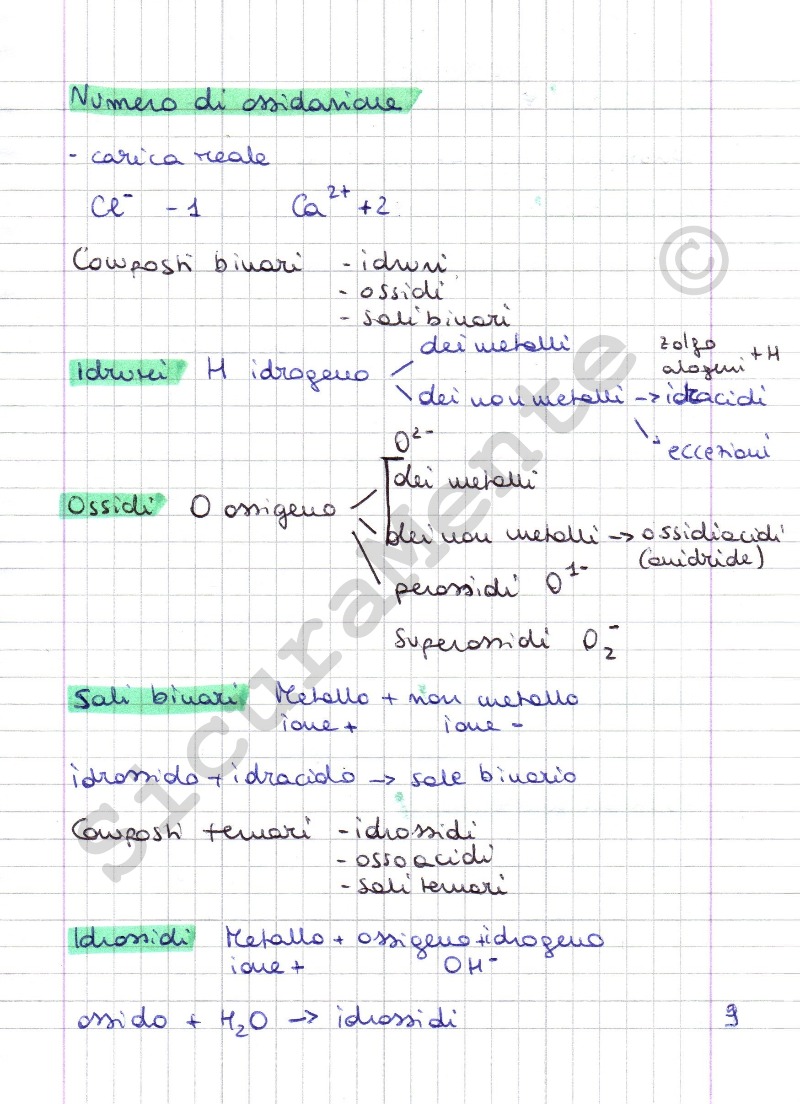 Numero di ossidazione
- carica reale
Cl⁻ -1 Ca²⁺ +2
Composti binari - idruri
- ossidi
- sali binari
dei metalli
zolfo
alogeni + H
Idruri H idrogeno
dei non metalli → idracidi
eccezioni
O²⁻
dei metalli
Ossidi O ossigeno
dei non metalli → ossidiacidi
(anidride)
perossidi O¹⁻
Superossidi O₂⁻
Sali binari Metallo + non metallo
ione + ione -
idrossido + idracido → sale binario
Composti ternari - idrossidi
- ossoacidi
- sali ternari
Idrossidi Metallo + ossigeno + idrogeno
ione + OH⁻
ossido + H₂O → idrossidi
9
SicuraMente ©